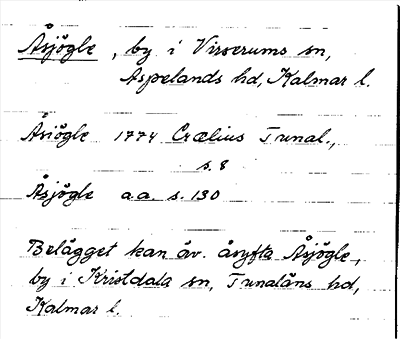 Åsjögle, by i Virserums sn,
Aspelands hd, Kalmar l.
Åsiögle 1774 Crælius Tunal.,
s. 8
Åsjögle a.a. s. 130
Belägget kan äv. åsyfta Åsjögle,
by i Kristdala sn, Tunaläns hd,
Kalmar l.